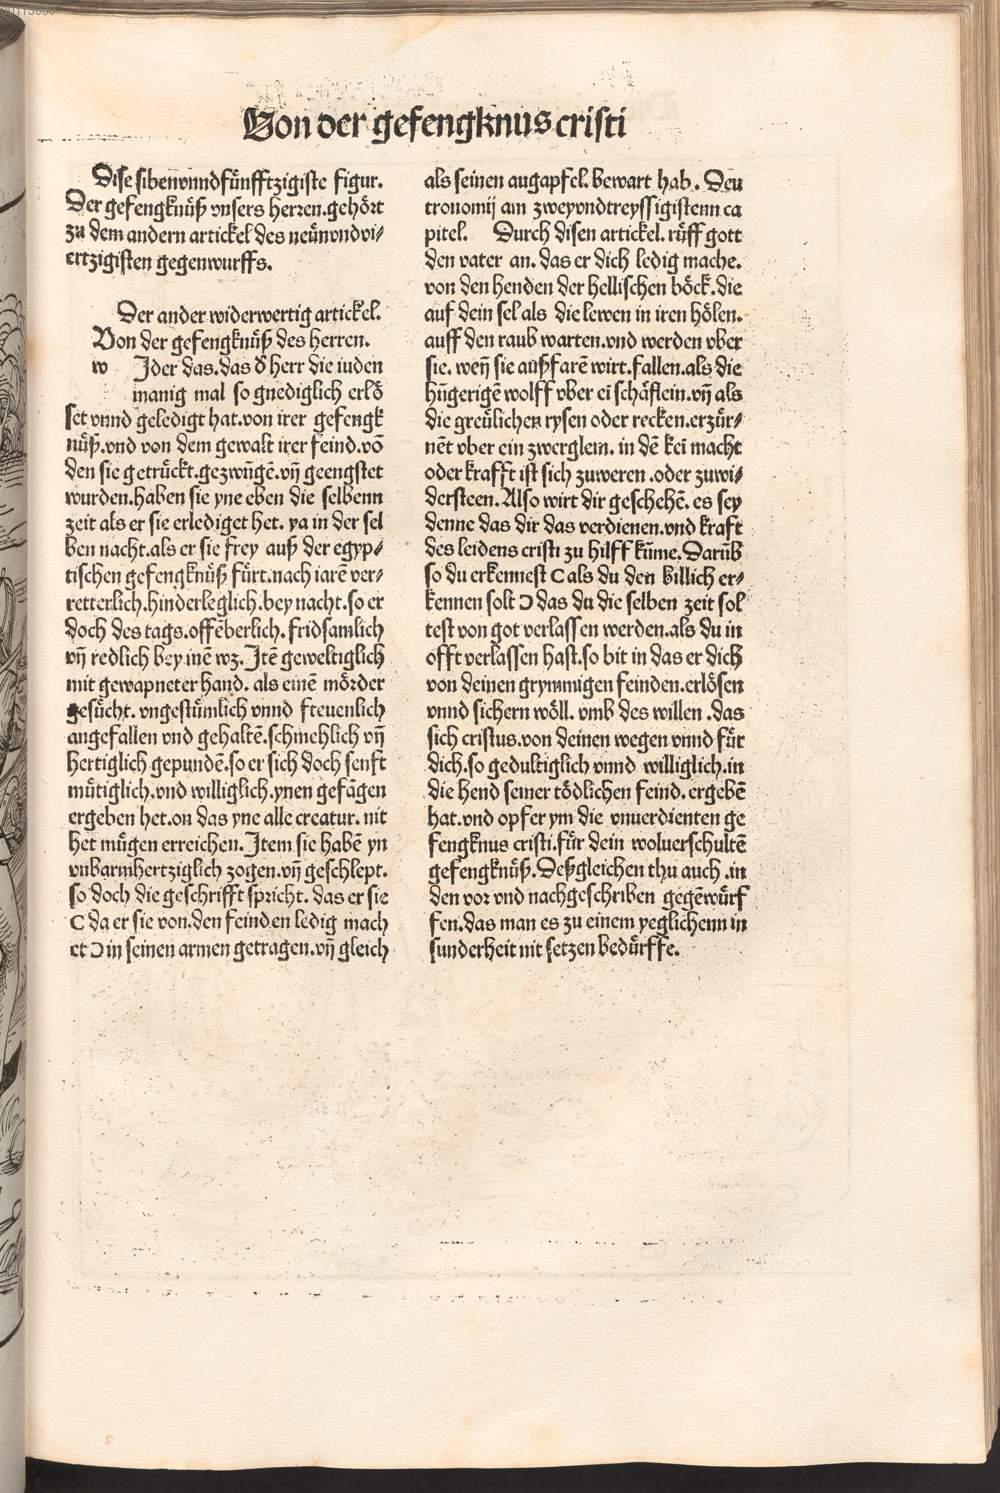 Von der gefengknus cristi
Dise sibenvnndfünfftzigiste figur.
Der gefengknüß vnsers herren.gehört
zu dem andern artickel des neünvndvi⸗
ertzigisten gegenwurffs.
Der ander widerwertig artickel.
Von der gefengknüß des herren.
w Jder das.das d̕ herr die iuden
manig mal so gnediglich erlö
set vnnd geledigt hat.von irer gefengk
nüß.vnd von dem gewalt irer feind.võ
den sie getrückt.gezwũgẽ.vñ geengstet
wurden.haben sie yne eben die selbenn
zeit als er sie erlediget het. ya in der sel
ben nacht.als er sie frey auß der egyp⸗
tischen gefengknüß fürt.nach iarẽ ver⸗
retterlich.hinderleglich.bey nacht.so er
doch des tags.offẽberlich.fridsamlich
vñ redlich bey inẽ wz. Jtẽ geweltiglich
mit gewapneter hand. als einẽ mörder
gesücht. vngestümlich vnnd freuenlich
angefallen vnd gehaltẽ.schmehlich vñ
hertiglich gepundẽ.so er sich doch senft
mütiglich.vnd williglich.ynen gefãgen
ergeben het.on das yne alle creatur. nit
het mügen erreichen. Jtem sie habẽ yn
vnbarmhertziglich zogen.vñ geschlept.
so doch die geschrifft spricht. das er sie
C da er sie von.den feinden ledig mach
et Ɔ in seinen armen getragen.vñ gleich
als seinen augapfel. bewart hab. Deu
tronomij am zweyvndtreyssigistenn ca
pitel. Durch disen artickel. rüff gott
den vater an. das er dich ledig mache.
von den henden der hellischen böck. die
auf dein sel als die lewen in iren hölen.
auff den raub warten.vnd werden vber
sie. weñ sie außfarẽ wirt.fallen.als die
hũgerigẽ wolff vber ei schäflein.vñ als
die greülichen rysen oder recken.erzür⸗
nẽt vber ein zwerglein. in dẽ kei macht
oder krafft ist sich zuweren .oder zuwi⸗
dersteen. Also wirt dir geschehẽ. es sey
denne das dir das verdienen.vnd kraft
des leidens cristi zu hilff kũme.Darũb
so du erkennest C als du den billich er⸗
kennen solt Ɔ das du die selben zeit sol
test von got verlassen werden.als du in
offt verlassen hast.so bit in das er dich
von deinen grymmigen feinden.erlösen
vnnd sichern wöll. vmb des willen .das
sich cristus.von deinen wegen vnnd für
dich.so gedultiglich vnnd williglich.in
die hend seiner tödlichen feind. ergebẽ
hat.vnd opfer ym die vnuerdienten ge
fengknus cristi.für dein wolverschultẽ
gefengknüß.Deßgleichen thu auch .in
den vor vnd nachgeschriben gegẽwürf
fen.das man es zu einem yeglichenn in
sunderheit nit setzen bedürffe.